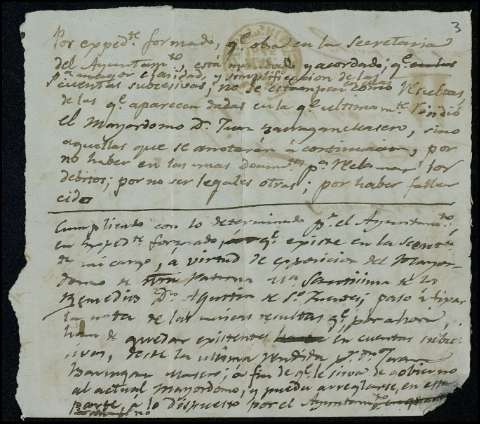 3
Por exped.te formado, q.e obra en la Secretaria
del Ayuntam.to, está mandado y acordado, q.e en las
p.a mayor claridad, y simplificacion de las
cuentas succesivas, no se estampen como Resultas,
de las q.e aparecen dadas en la q.e ultimam.te Rindió
el Mayordomo D.n Juan, sino
aquellas que se anotarán á continuacion, por
no haber en las unas docum.tos p.a Reclamar los
debitos; por no ser legales otras; y por haber falle
cido
Cumpliendo con lo determinado p.r el Ayuntam.to,
en exped.te formado q.e existe en la Secret.a
de mi cargo, a virtud de exposicion del Mayor
domo de Ntra Patrona Maria Santisima de los
Remedios D.n Agustin de S.n, paso á fijar
la nota de las unicas resultas q.e, por ahora,
han de quedar existentes en cuentas subce
sivas, desde la ultima rendida p.r D.n Juan
á fin de q.e le sirva de gobierno
al actual Mayordomo, y pueda arreglarse, en esta
parte, á lo dispuesto por el Ayuntam.to